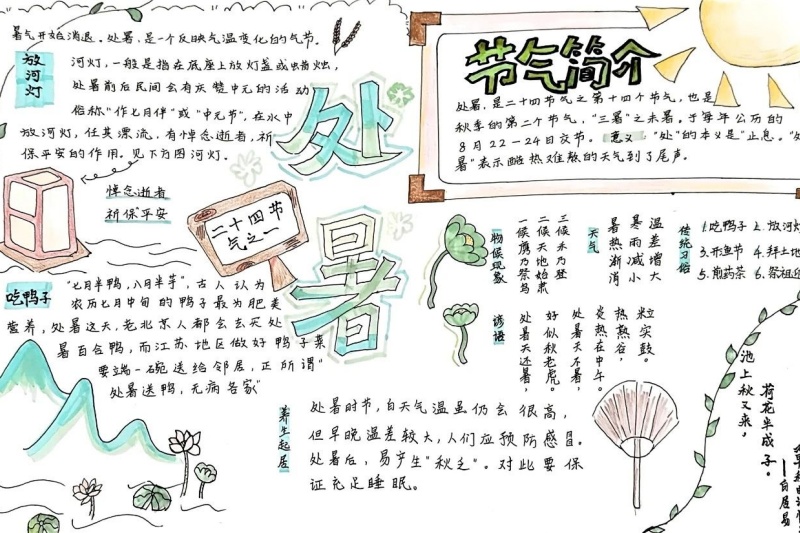 暑气开始消退。处暑,是一个反映气温变化的气节。
放河灯
河灯,一般是指在底座上放灯盏或蜡烛,
处暑前后民间会有庆赞中元的活动
俗称"作七月伴"或"中元节",在水中
放河灯,任其漂流,有悼念逝者,祈
保平安的作用。见下方图河灯。
悼念逝者
祈保平安
二十四节
气之一
处暑
吃鸭子
"七月半鸭,八月半芋",古人认为
农历七月中旬的鸭子最为肥美
营养,处暑这天,老北京人都会去买处
暑百合鸭,而江苏地区做好鸭子菜
要端一碗送给邻居,正所谓"
处暑送鸭,无病各家"
节气简介
处暑,是二十四节气之第十四个节气,也是
秋季的第二个节气,"三暑"之末暑。于每年公历的
8月22—24日交节。意义 "处"的本义是"止息。"处
暑"表示酷热难熬的天气到了尾声。
物候现象
一候鹰乃祭鸟
二候天地始肃
三候禾乃登
天气
暑热渐消
寒雨减小
温差增大
传统习俗
1.吃鸭子 2.放河灯
3.开鱼节 4.拜土地
5.煎药茶 6.祭祖迎
谚语
处暑天还暑,
好似秋老虎。
处暑天不暑,
炎热在中午。
热熟谷,
粒实鼓。
养生起居
处暑时节,白天气温虽仍会很高,
但早晚温差较大,人们应预防感冒。
处暑后,易产生"秋乏"。对此要保
证充足睡眠。
荷花半成子。
池上秋又来,
——白居易